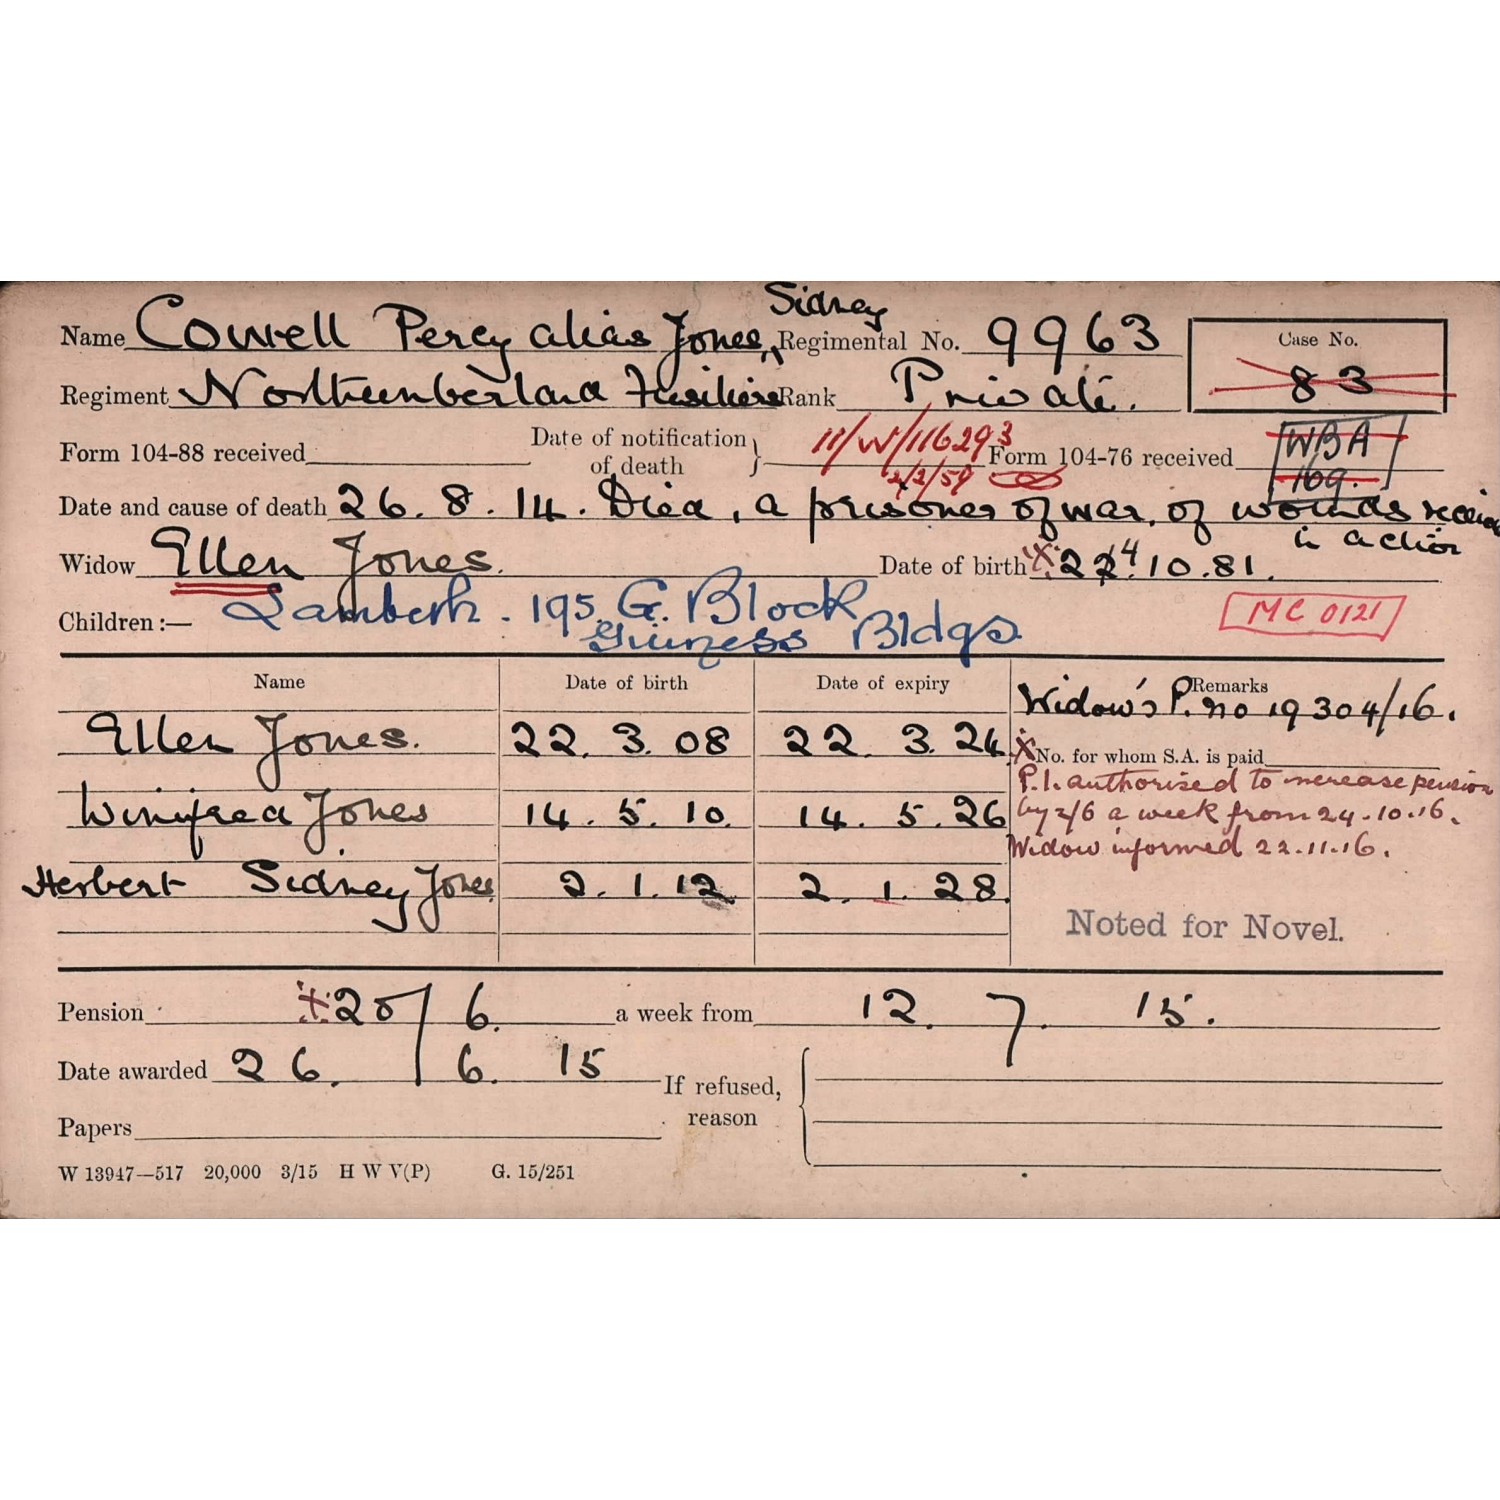 Name Cowell Percy alias Jones, Sidney Regimental No. 9963 Case No. 83
Regiment Northumberland Fusiliers Rank Private.
Form 104-88 received Date of notification of death } 11/W/116293 Form 104-76 received WBA 169.
2/2/59
Date and cause of death 26.8.14. Died, a prisoner of war, of wounds receiv
in action
Widow Ellen Jones. Date of birth X 22 4.10.81.
Children :— Lambeth. 195. G. Block MC 0121
Guiness Bldgs
Name Date of birth Date of expiry Remarks
Widow's P. no 19304/16.
Ellen Jones. 22. 3. 08 22. 3. 24
X No. for whom S.A. is paid
P.I. authorised to increase pension
Winifred Jones 14. 5. 10. 14. 5. 26 by 2/6 a week from 24.10.16.
Widow informed 22.11.16.
Herbert Sidney Jones 2. 1. 12 2. 1. 28.
Noted for Novel.
Pension X 20/6. a week from 12. 7. 15.
Date awarded 26. 6. 15 If refused, reason
Papers
W 13947—517 20,000 3/15 H W V(P) G. 15/251